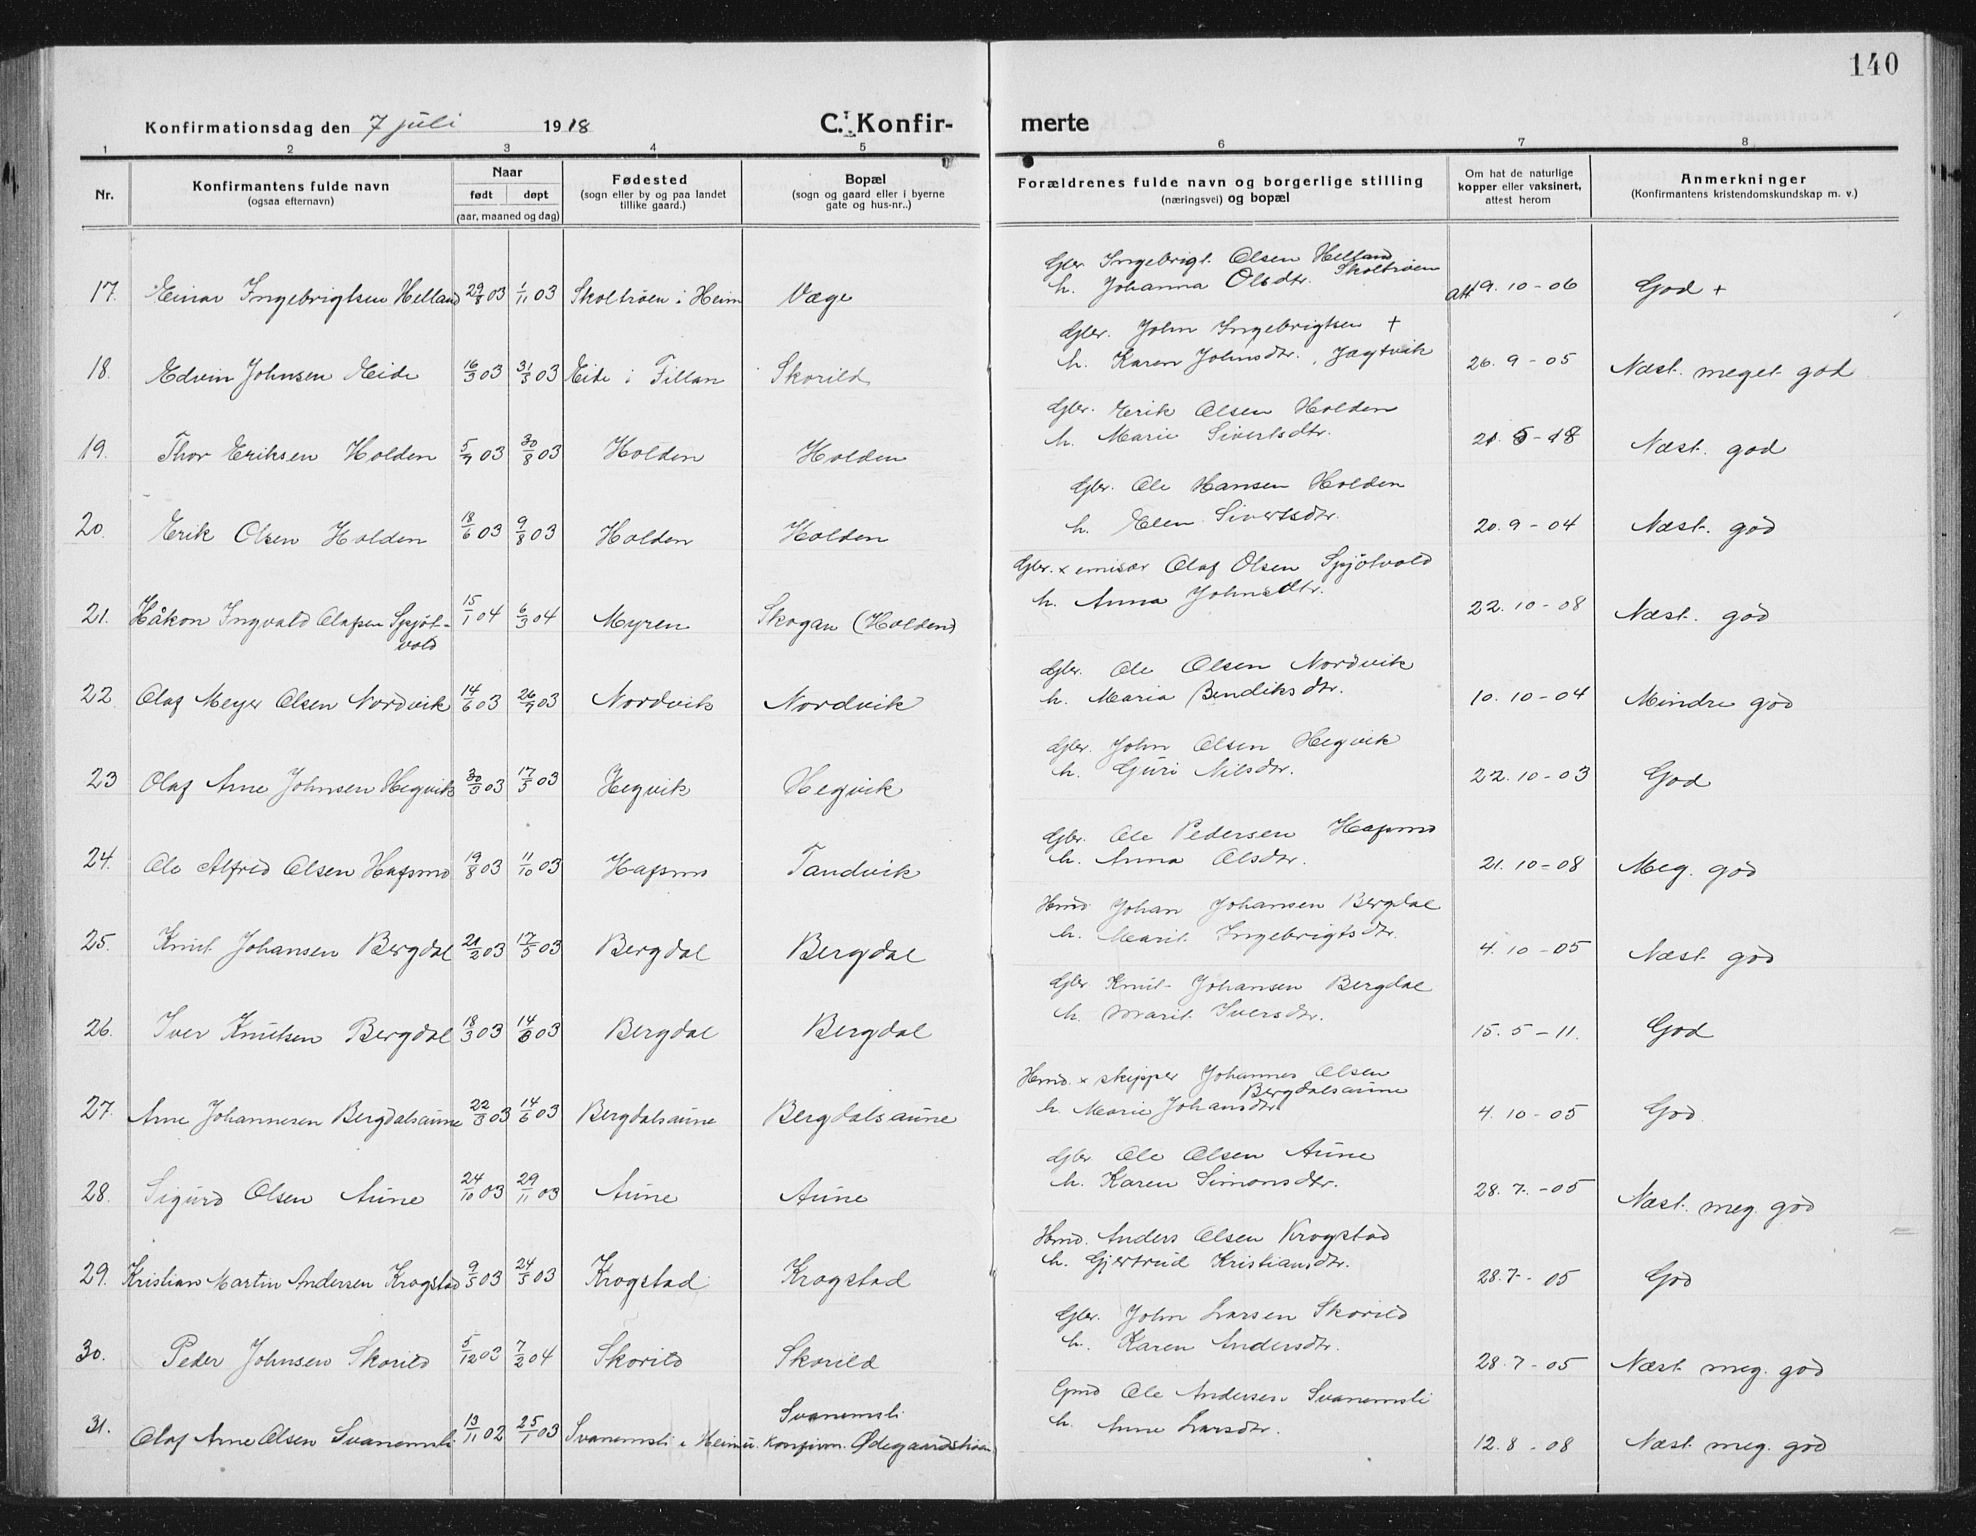 140
Konfirmationsdag den 7 juli 1918 C. Konfir- merte
1 2 3 4 5 6 7 8
Nr. Konfirmantens fulde navn (ogsaa efternavn) Naar født døpt (aar, maaned og dag) Fødested (sogn eller by og paa landet tillike gaard.) Bopæl (sogn og gaard eller i byerne gate og hus-nr..) Forældrenes fulde navn og borgerlige stilling (næringsvei) og bopæl Om hat de naturlige kopper eller vaksinert, attest herom Anmerkninger (Konfirmantens kristendomskundskap m. v.)
Gbr. Ingebrigt Olsen Helland Skoltrøen
17. Einar Ingebrigtsen Helland 29/8 03 1/11 03 Skoltrøen i Heim Væge h. Johanna Olsdtr. att 19.10-06 God +
Gbr. John Ingebrigtsen +
18. Edvin Johnsen Eide 16/3 03 31/5 03 Eide i Fillan Skorild h. Karen Johnsdtr. Jagtvik 26.9-05 Næst. meget god
Gbr. Erik Olsen Holden
19. Thor Eriksen Holden 5/7 03 30/8 03 Holden Holden h. Marie Sivertsdtr. 21.5-18 Næst. god
Gbr. Ole Hansen Holden
20. Erik Olsen Holden 18/6 03 9/8 03 Holden Holden h. Elen Sivertsdtr. 20.9-04 Næst. god
Gbr. x emisær Olaf Olsen Spjøtvold
21. Håkon Ingvald Olafsen Spjøt-vold 15/1 04 6/3 04 Myren Skogan (Holden) h. Anna Johnsdtr. 22.10-08 Næst. god
Gbr. Ole Olsen Nordvik
22 Olaf Meyer Olsen Nordvik 14/6 03 26/7 03 Nordvik Nordvik h. Maria Bendiksdtr. 10.10-04 Mindre god
Gbr. John Olsen Hegvik
23 Olaf Arne Johnsen Hegvik 30/3 03 17/5 03 Hegvik Hegvik h. Guri Nilsdtr. 22.10-03 God
Gbr. Ole Pedersen Hafsmo
24. Ole Alfred Olsen Hafsmo 19/8 03 11/10 03 Hafsmo Tandvik h. Anna Olsdtr. 21.10-08 Meg. god
Hmd. Johan Johansen Bergdal
25. Knut Johansen Bergdal 21/2 03 17/5 03 Bergdal Bergdal h. Marit Ingebrigtsdtr. 4.10-05 Næst god
Gbr. Knut Johansen Bergdal
26. Iver Knutsen Bergdal 18/3 03 14/6 03 Bergdal Bergdal h. Marit Iversdtr. 15.5-11. God
Hmd. x skipper Johannes Olsen Bergdalsaune
27. Arne Johannesen Bergdalsaune 22/3 03 14/6 03 Bergdalsaune Bergdalsaune h. Marie Johansdtr. 4.10-05 God
Gbr Ole Olsen Aune
28. Sigurd Olsen Aune 24/10 03 29/11 03 Aune Aune h. Karen Simonsdtr. 28.7.-05 Næst. meg. god
Hmd. Anders Olsen Krogstad
29. Kristian Martin Andersen Krogstad 9/5 03 24/5 03 Krogstad Krogstad h. Gjertrud Kristiansdtr. 28.7-05 God
Gbr. John Larsen Skorild
30. Peder Johnsen Skorild 5/12 03 7/2 04 Skorild Skorild h. Karen Andersdtr. 28.7-05 Næst. meg. god
Svanemsli Gmd Ole Andersen Svanemsli
31. Olaf Arne Olsen Svanemsli 13/11 02 25/1 03 Svanemsli i Heim u. Konfirm. Ødegaardstrøen h. Anne Larsdtr. 12.8-08 Næst. meg. god